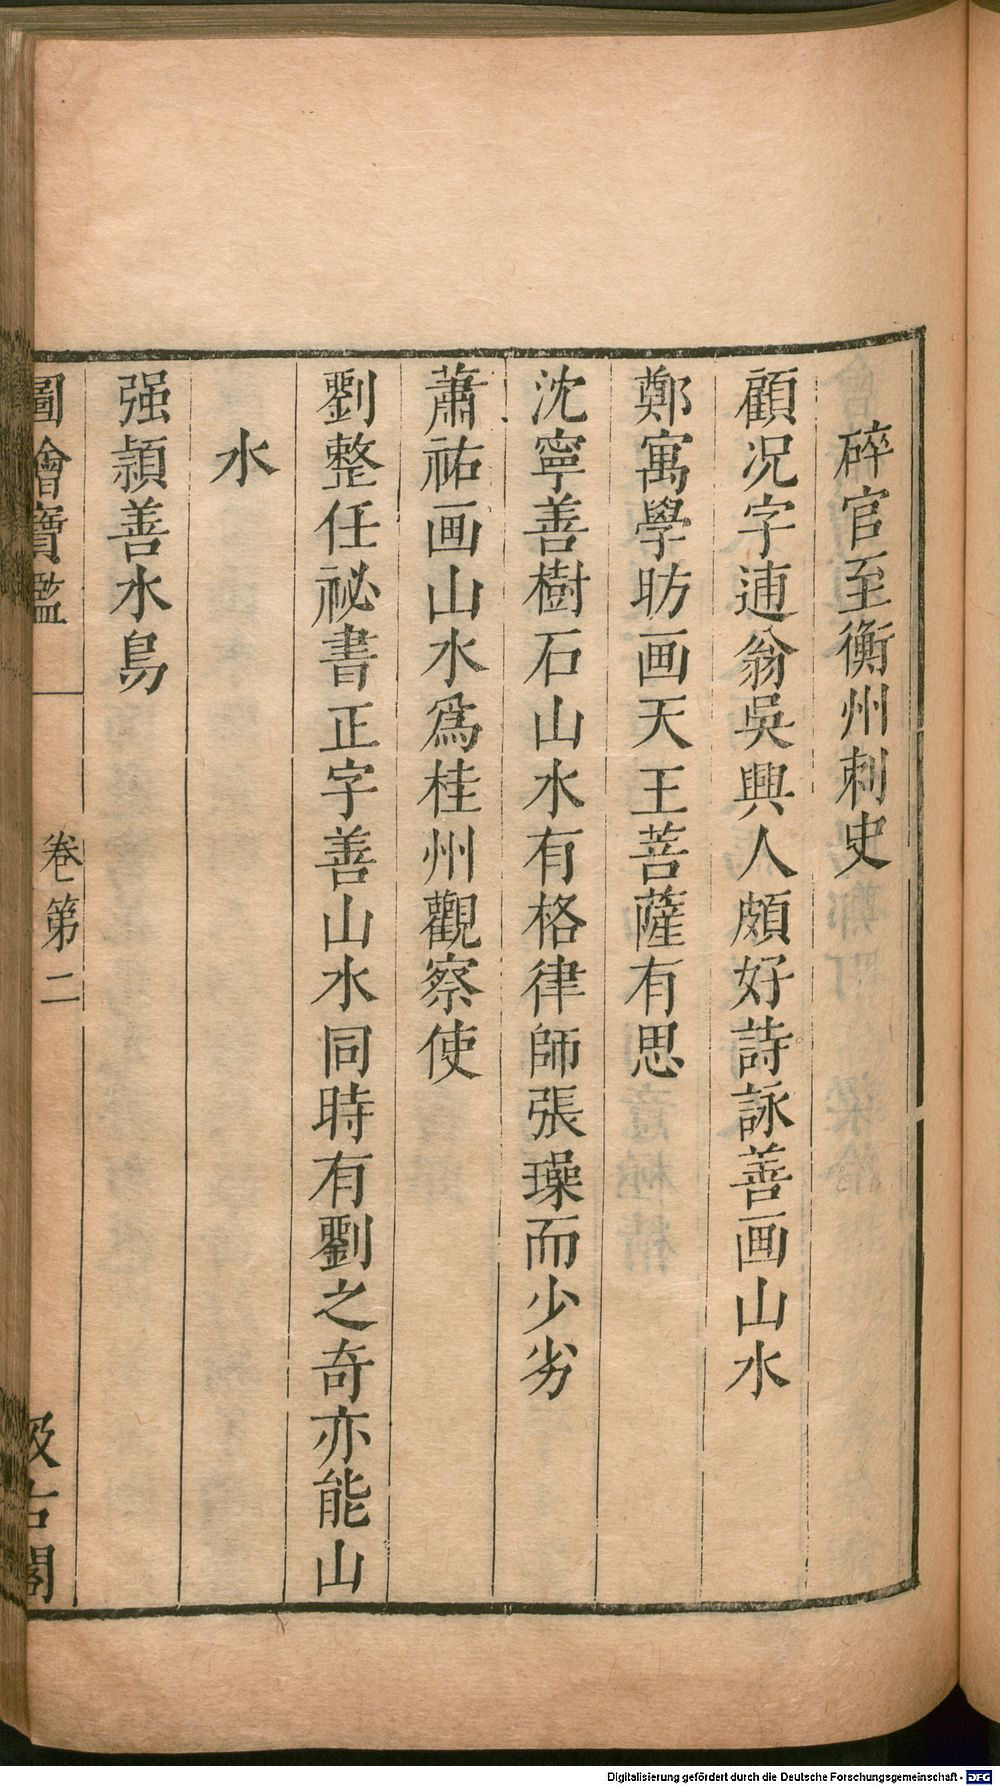 碎官至衡州刺史
顧况字逋翁吳興人頗好詩詠善画山水
鄭寓學昉画天王菩薩有思
沈寧善樹石山水有格律師張璪而少劣
蕭祐画山水爲桂州觀察使
劉整任祕書正字善山水同時有劉之奇亦能山
水
强潁善水鳥
圖繪寶鑑
卷第二
汲古閣
Digitalisierung gefördert durch die Deutsche Forschungsgemeinschaft - DFG